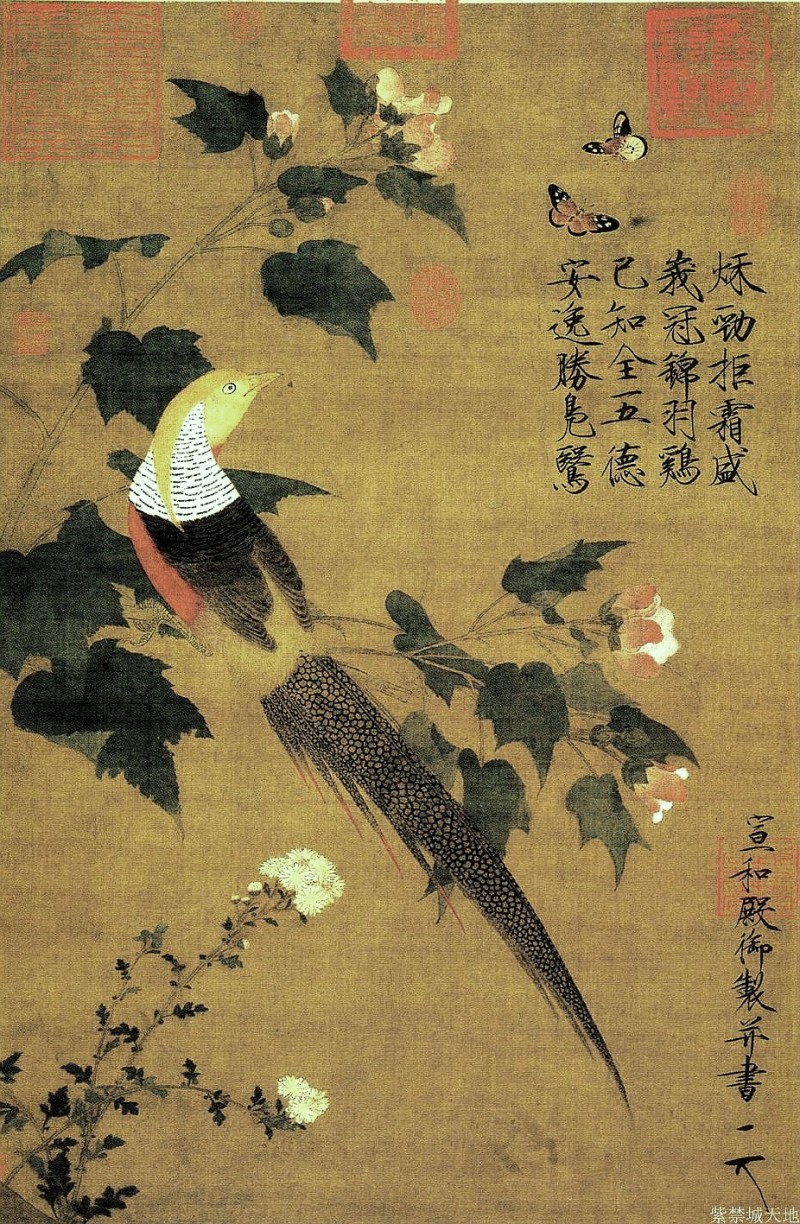 秌勁拒霜盛
莪冠錦羽鷄
已知全五德
安逸勝鳬鷖
宣和殿御製并書
紫禁城天地